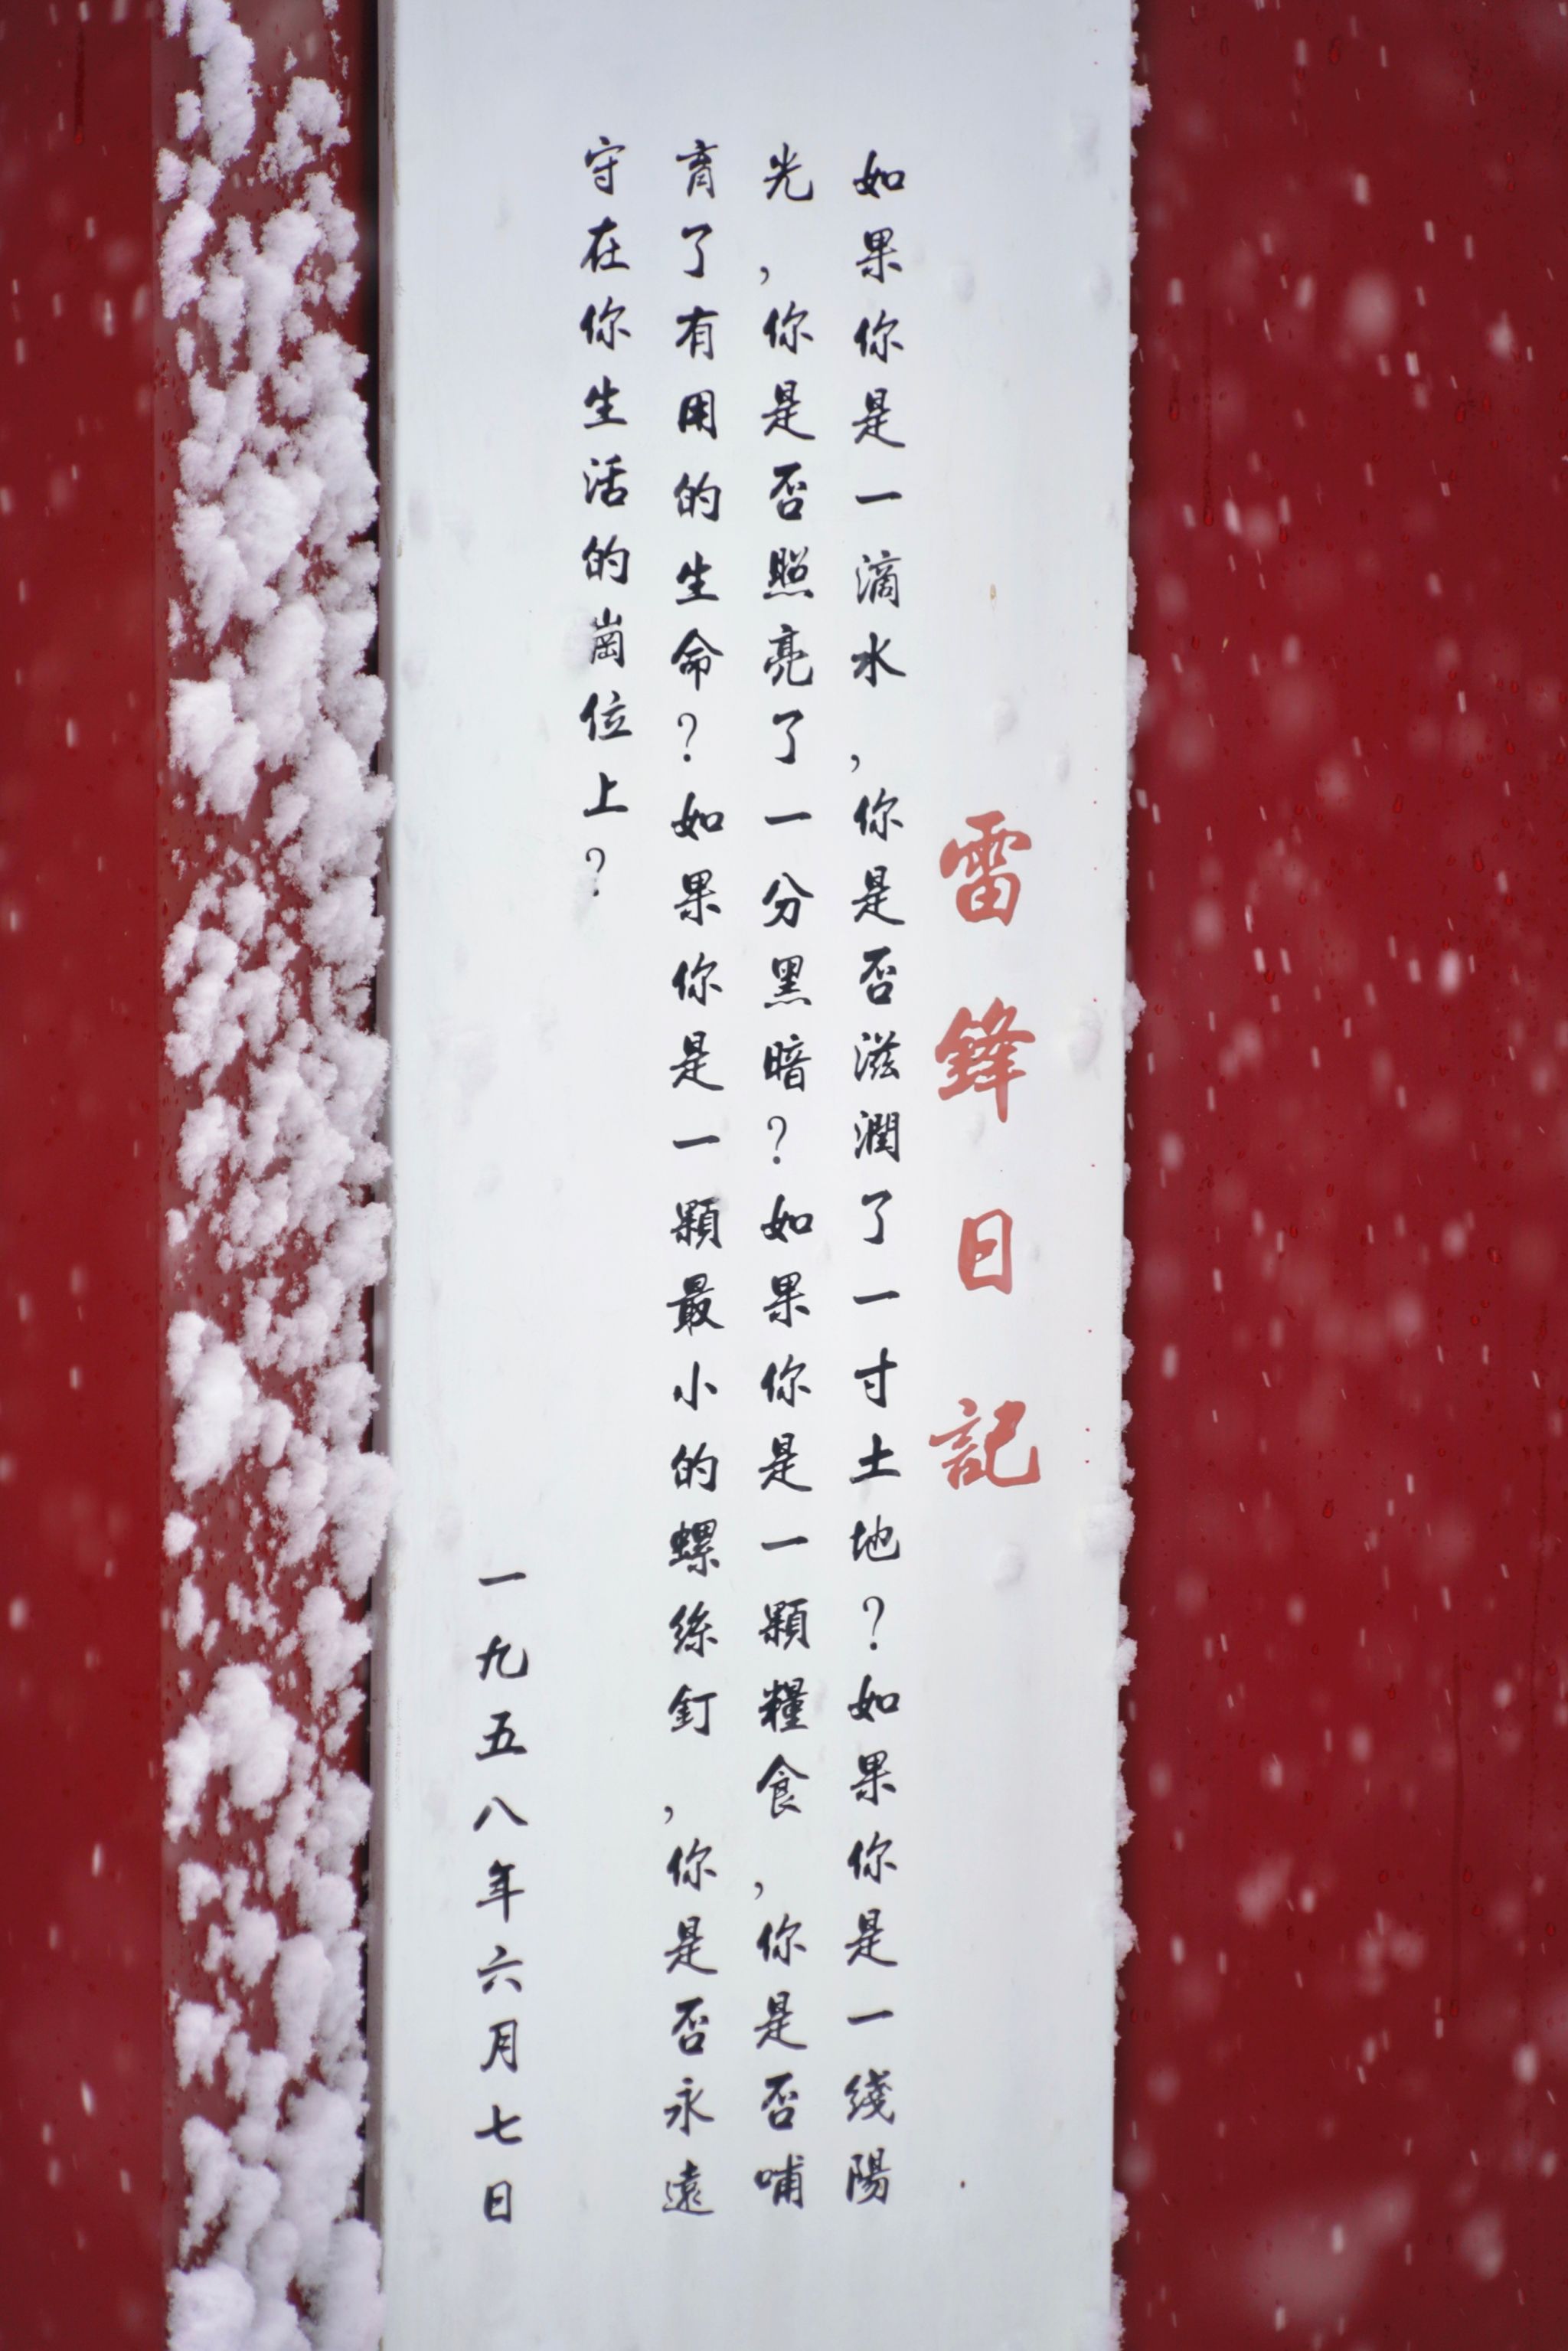 雷鋒日記
如果你是一滴水，你是否滋潤了一寸土地？如果你是一綫陽
光，你是否照亮了一分黑暗？如果你是一顆糧食，你是否哺
育了有用的生命？如果你是一顆最小的螺絲釘，你是否永遠
守在你生活的崗位上？
一九五八年六月七日